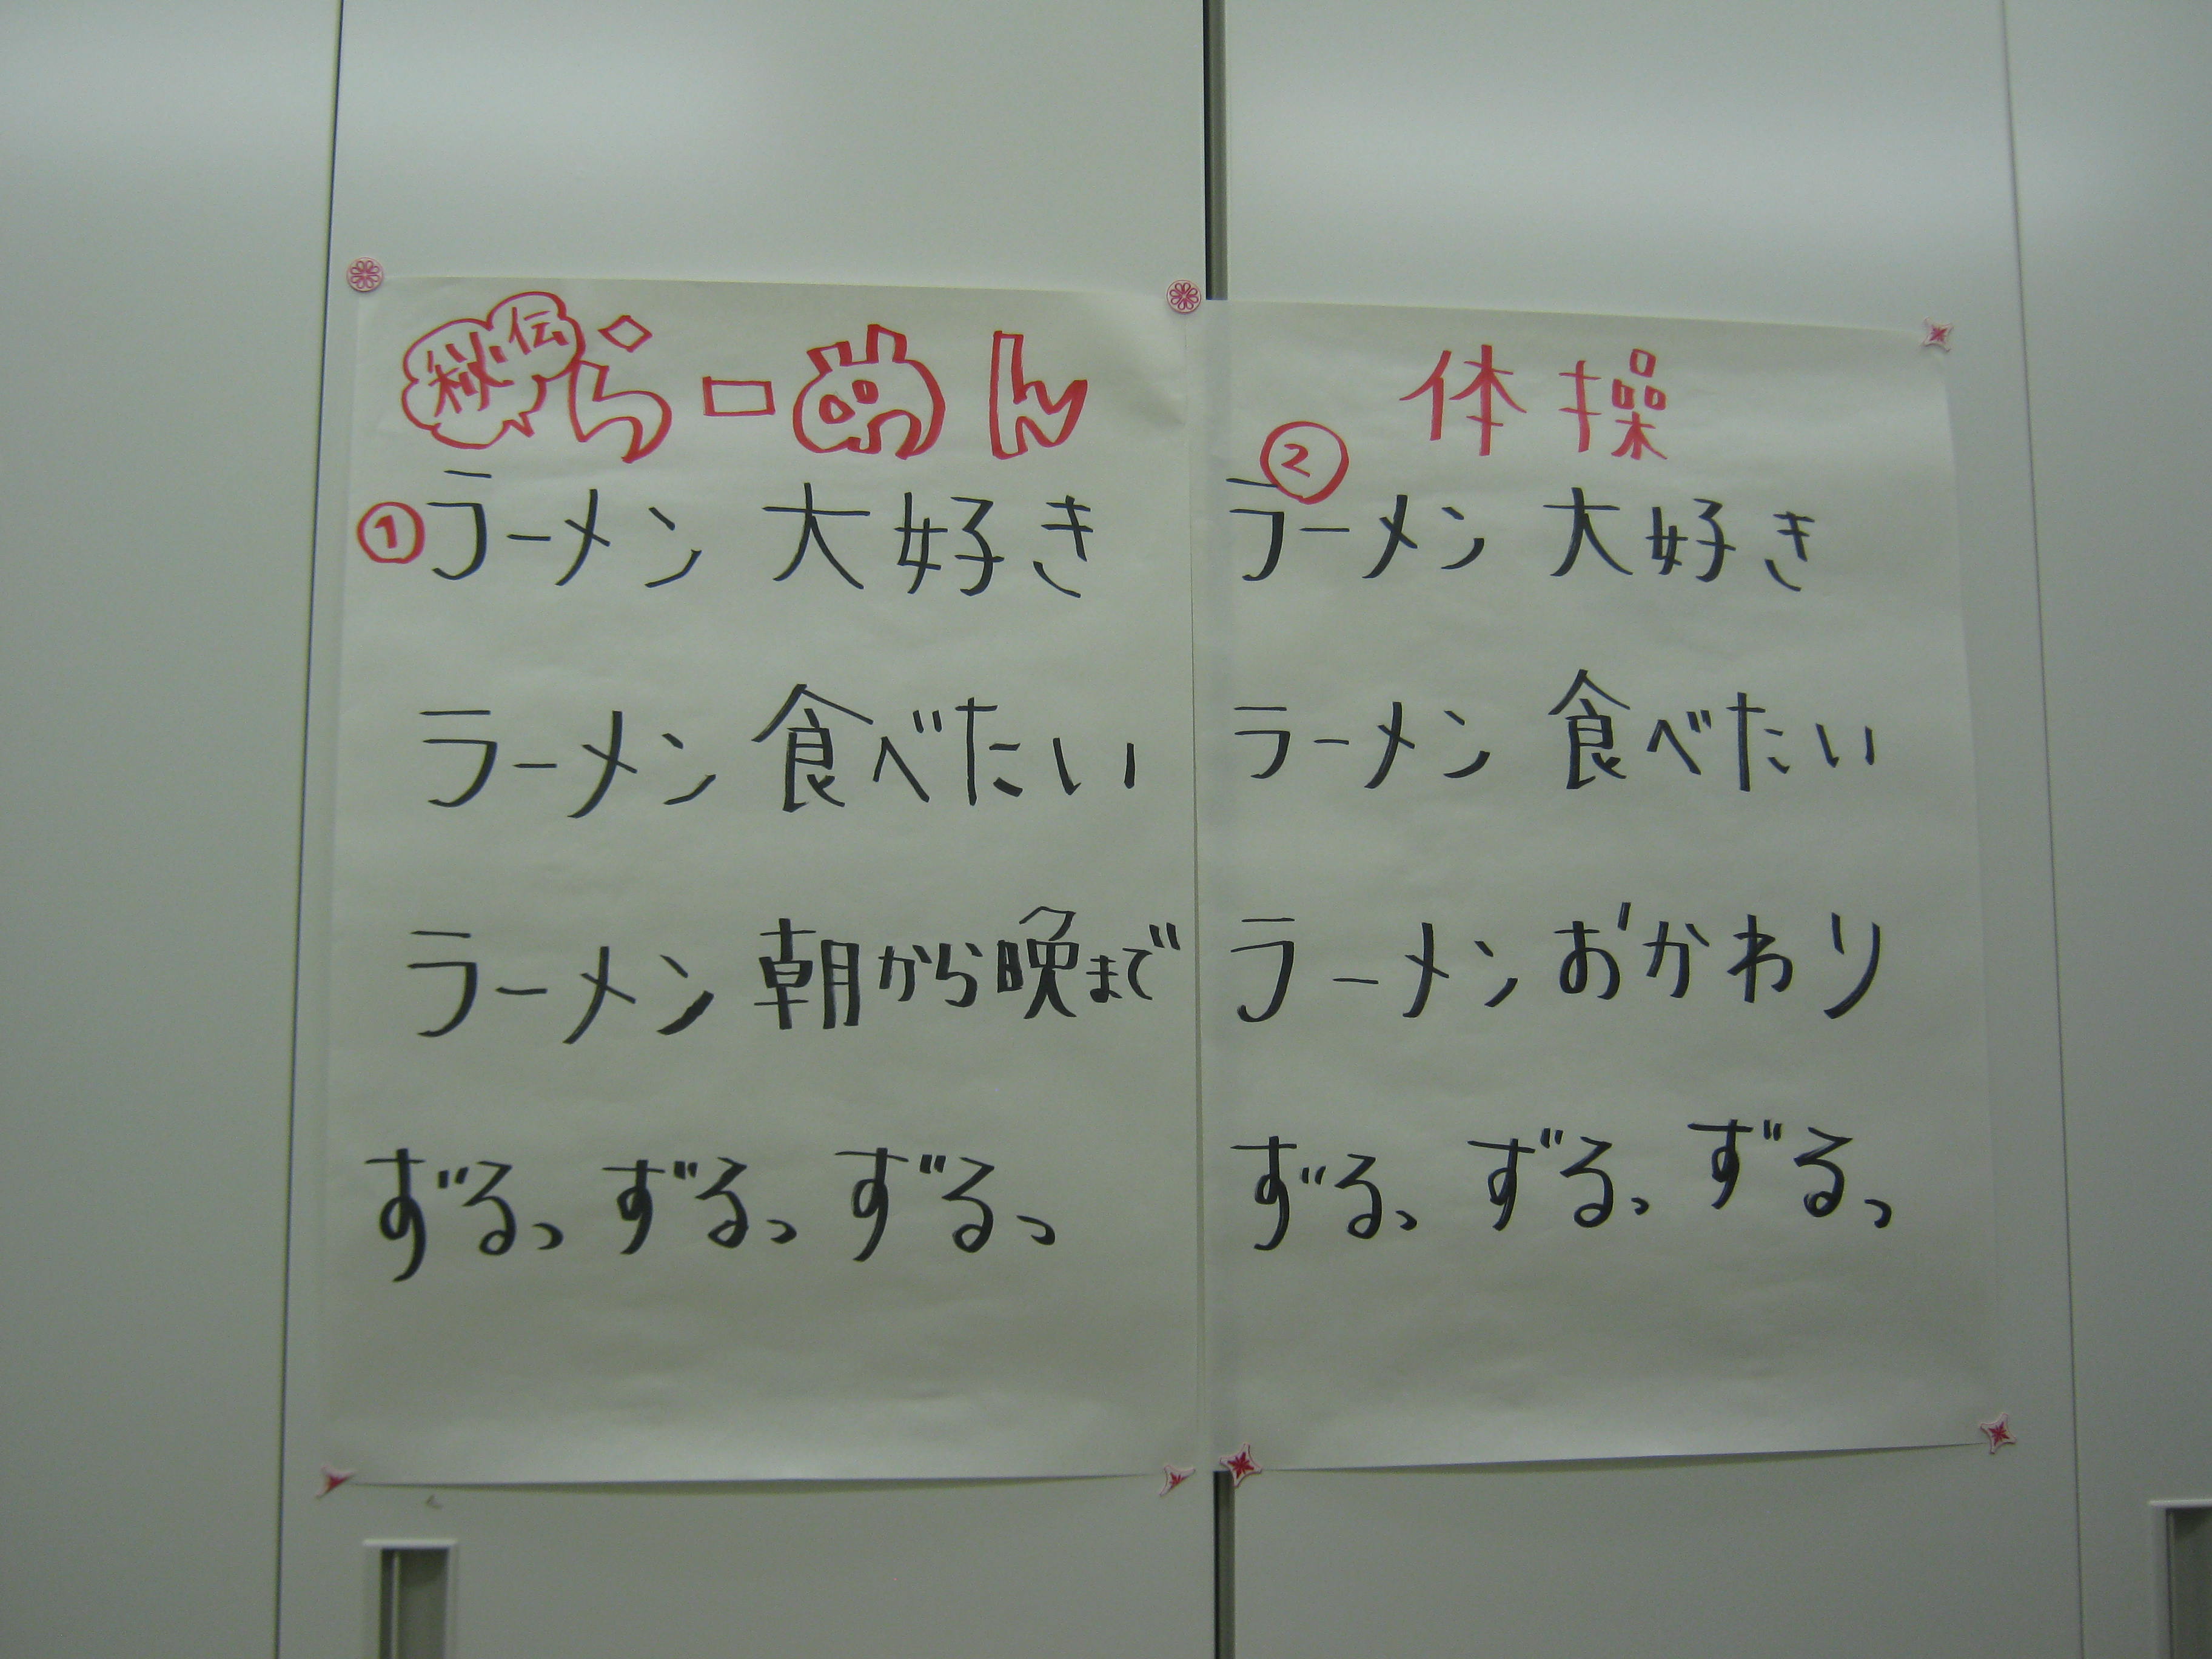 秘伝 らーめん 体操
① ラーメン 大好き
ラーメン 食べたい
ラーメン 朝から晩まで
ずるっ ずるっ ずるっ
② ラーメン 大好き
ラーメン 食べたい
ラーメン おかわり
ずるっ ずるっ ずるっ